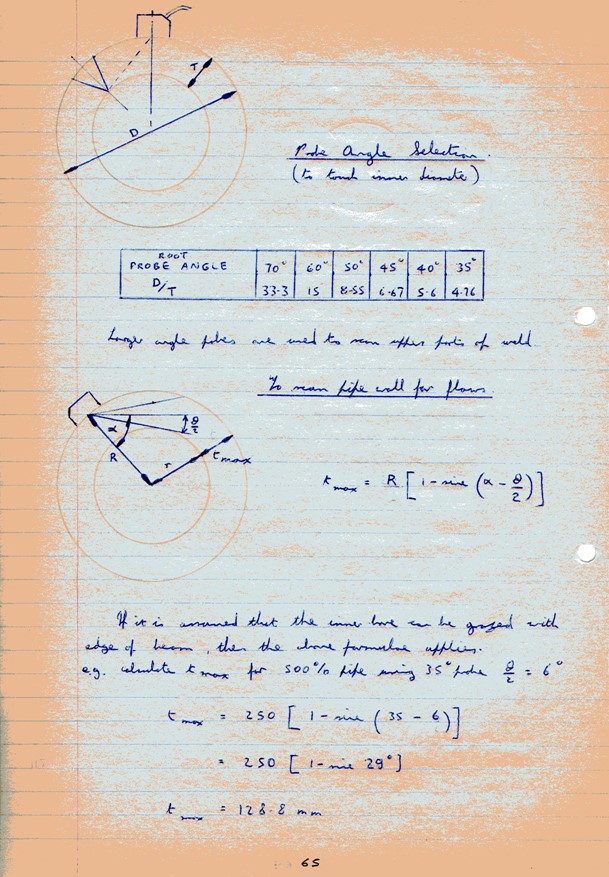 T
D
Probe Angle Selection.
(to touch inner diameter)
ROOT
PROBE ANGLE 70° 60° 50° 45° 40° 35°
D/T 33.3 15 8.55 6.67 5.6 4.76
Larger angle probes are used to scan upper parts of weld.
To scan pipe wall for flaws.
α θ/2
R r t max
t max = R [ 1 - sine ( α - θ/2 ) ]
If it is assumed that the inner bore can be grazed with
edge of beam, then the above formulae applies.
e.g. calculate t max for 500 % pipe using 35° probe θ/2 = 6°
t max = 250 [ 1 - sine ( 35 - 6 ) ]
= 250 [ 1 - sine 29° ]
t max = 128.8 mm
65